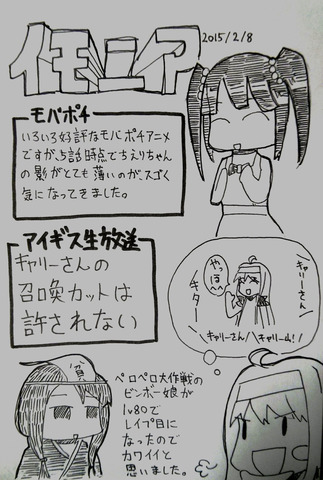 イモニア
2015/2/8
モバポチ
いろいろ好評なモバポチアニメ
ですが、5話時点でちえりちゃん
の影がとても薄いのが、スゴく
気になってきました。
アイギス生放送
キャリーさんの
召喚カットは
許されない
キャリーさん!
やっほー
キター
キャリーさん!
キャリーム!!
貧
ペロペロ大作戦の
ビンボー娘が
lv80で
レイプ目に
なったので
カワイイと
思いました。